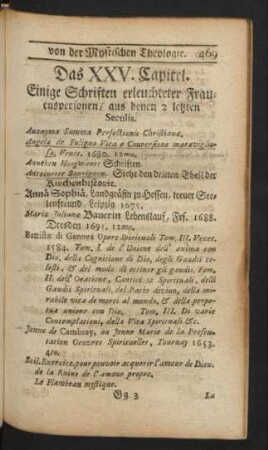 von der Mystischen Theologie. 469
Das XXV. Capitel.
Einige Schriften erleuchteter Frau-
enspersonen/ aus denen 2 letzten
Seculis.
Anonymæ Summa Perfectionis Christianæ.
Angela de Fuligno Vita e Conversione maraviglio-
sa. Venet. 1680. 12mo.
Annæken Schriften
Antoinette Bourignon. Siehe den dritten Theil der
Kirchenhistorie.
Anna Sophia, Landgräfin zu Hessen, treuer See-
lenfreund. Leipzig 1675.
Maria Juliana Bauerin Lebenslauf, Frf. 1688.
Dresden 1691. 12mo.
Battistæ di Genova Opere Spirituali Tom. III. Venet.
1584. Tom. I. de l'Unione dell' anima con
Dio, della Cognitione di Dio, degli Gaudii ce-
lesti, & del modo di ottiner gli gaudii. Tom.
II. dell' Oratione, Cantici 12 Spirituali, delli
Gaudii Spirituali, del Patto divino, della mi-
rabile vita de morti al mondo, & della perpe-
tua unione con Dio, Tom. III. Di varie
Contemplationi, della Vita Spirituali &c.
Jenne de Cambray, ou Jenne Marie de la Presen-
tation Oeuvres Spirituelles, Tournay 1653.
4to.
Exercice, pour pouvoir acquerir l'amour de Dieu.
de la Ruine de l'amour propre.
Le Flambeau mystique.
Gg 3 La